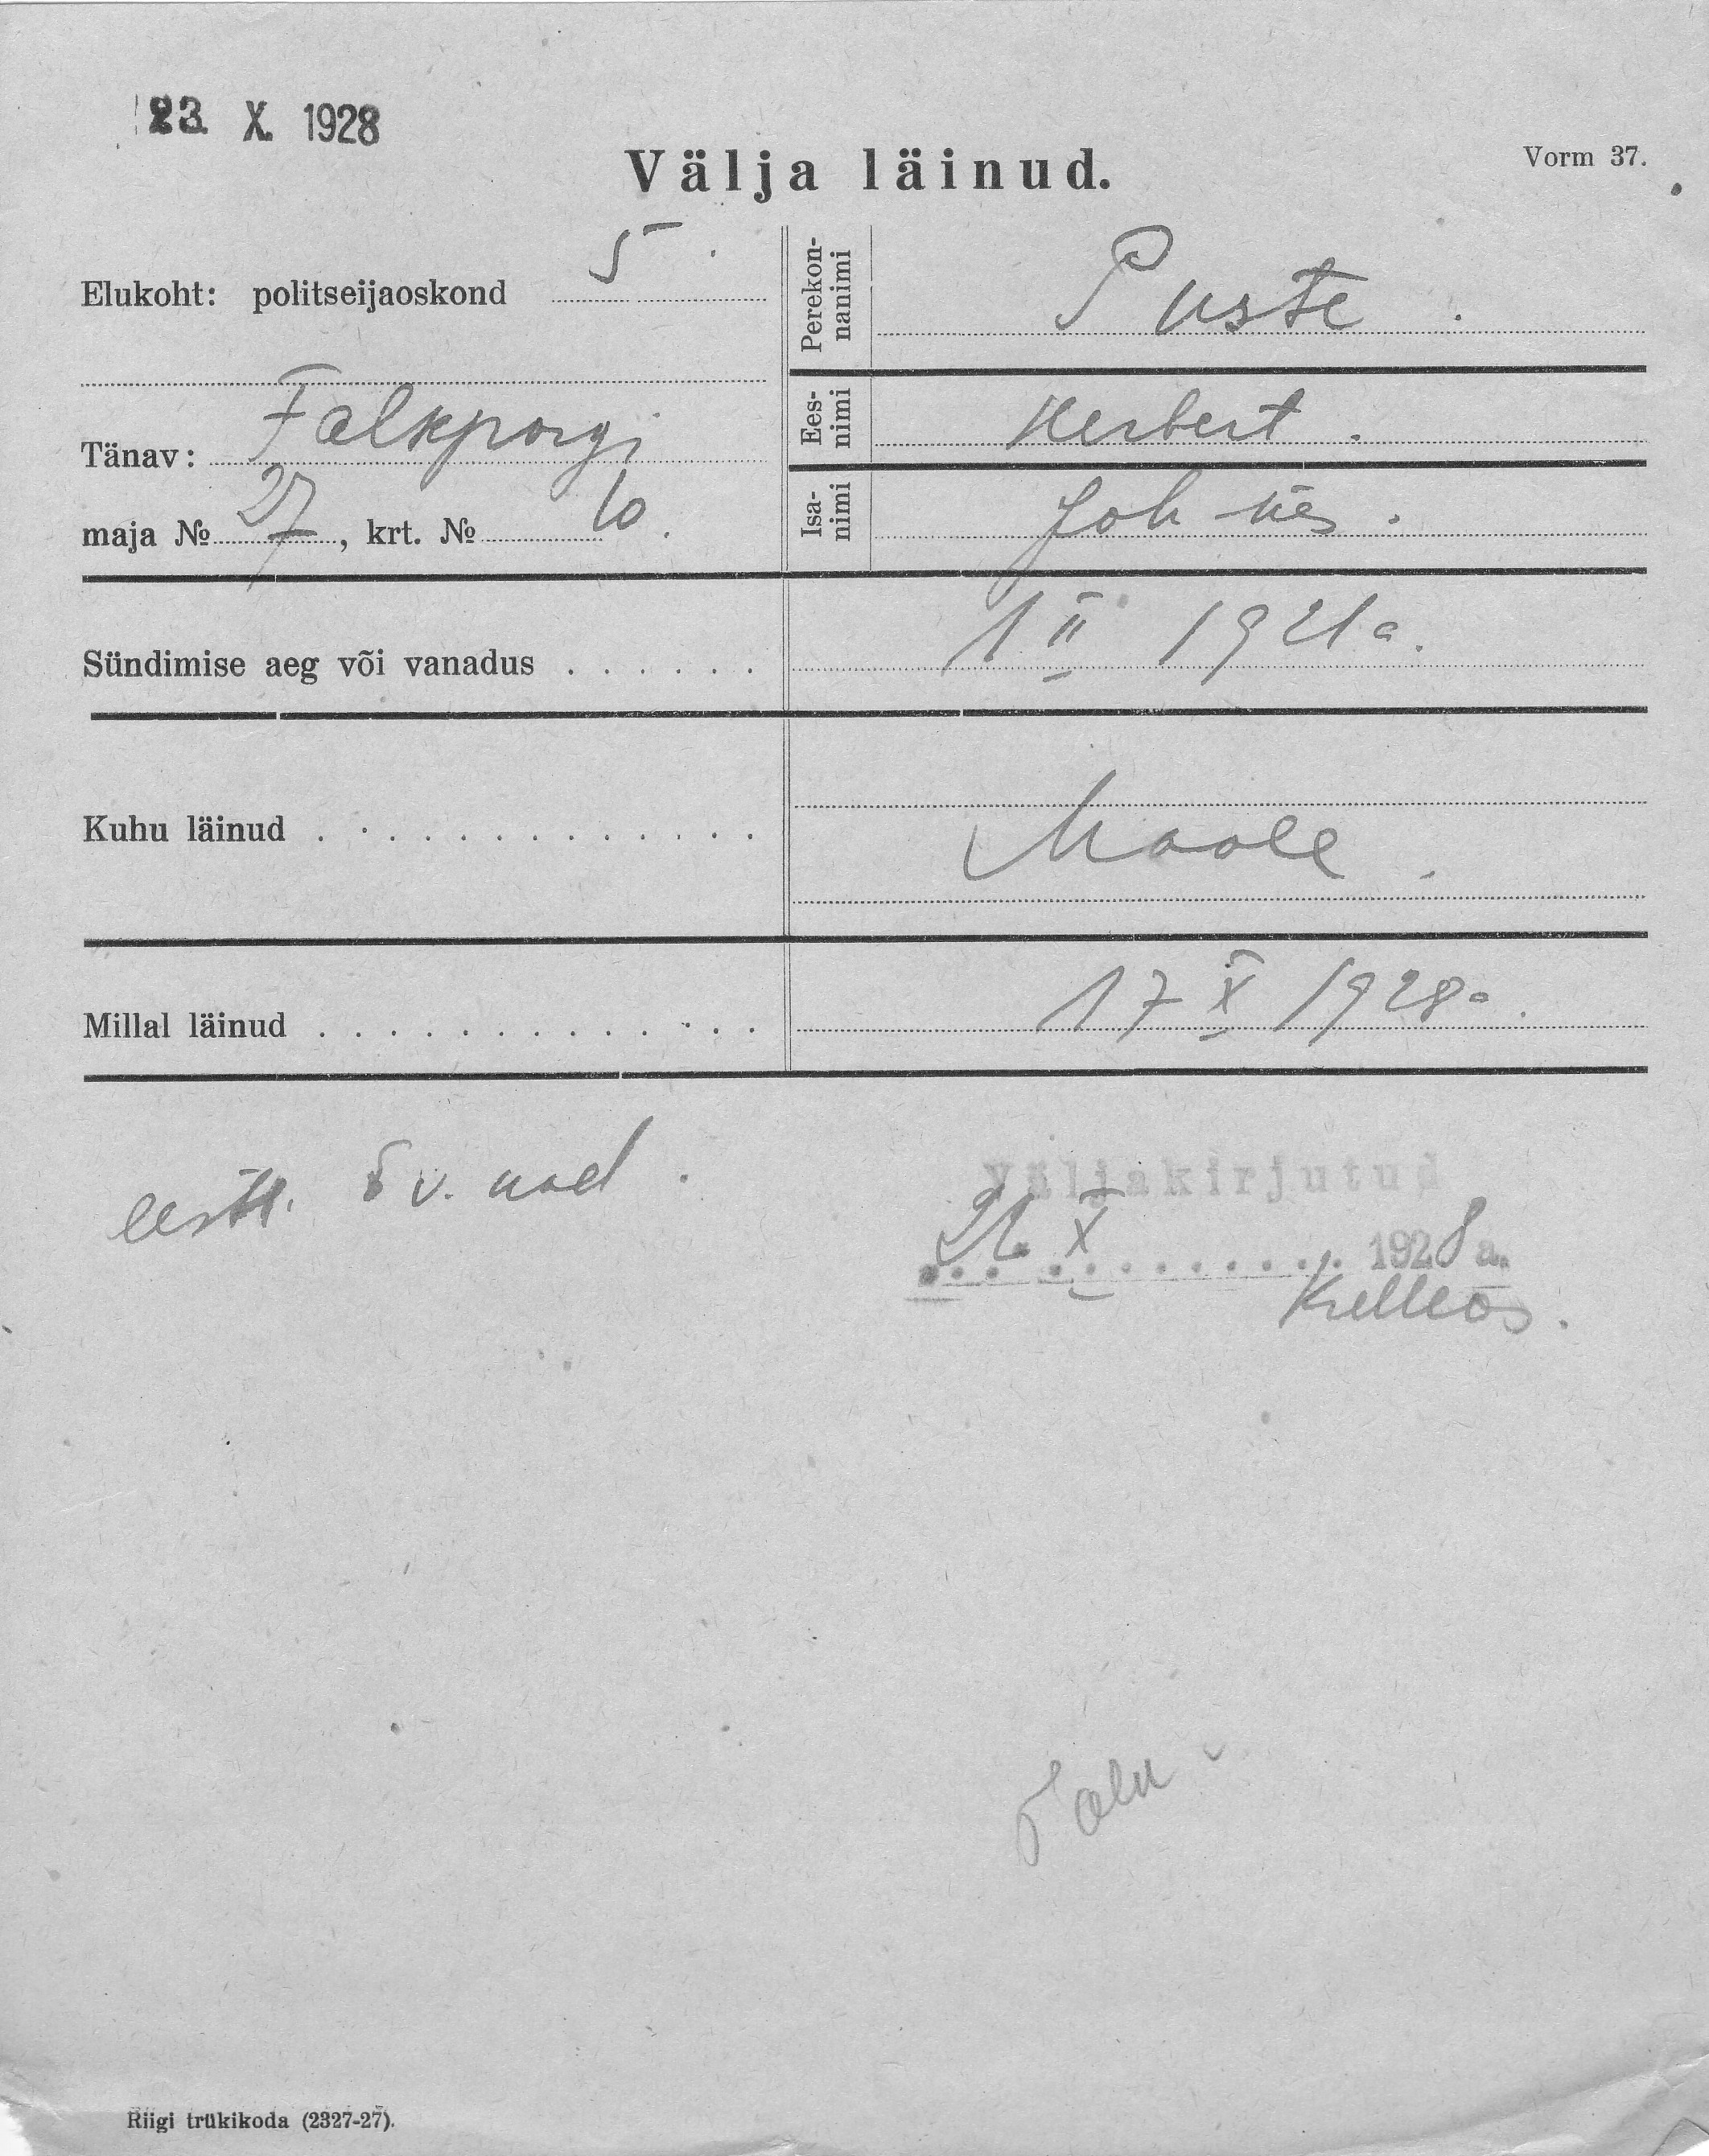 23. X. 1928
Välja läinud.
Vorm 37.
Elukoht: politseijaoskond 5.
Tänav: Falkporgi
maja № 27, krt. № 10.
Perekon-
nanimi
Puste.
Ees-
nimi
Herbert.
Isa-
nimi
Joh-nes.
Sündimise aeg või vanadus
1 II 1921 a.
Kuhu läinud
Maale.
Millal läinud
17 X 1928 a.
eestl. v.
Väljakirjutud
X 1928 a.